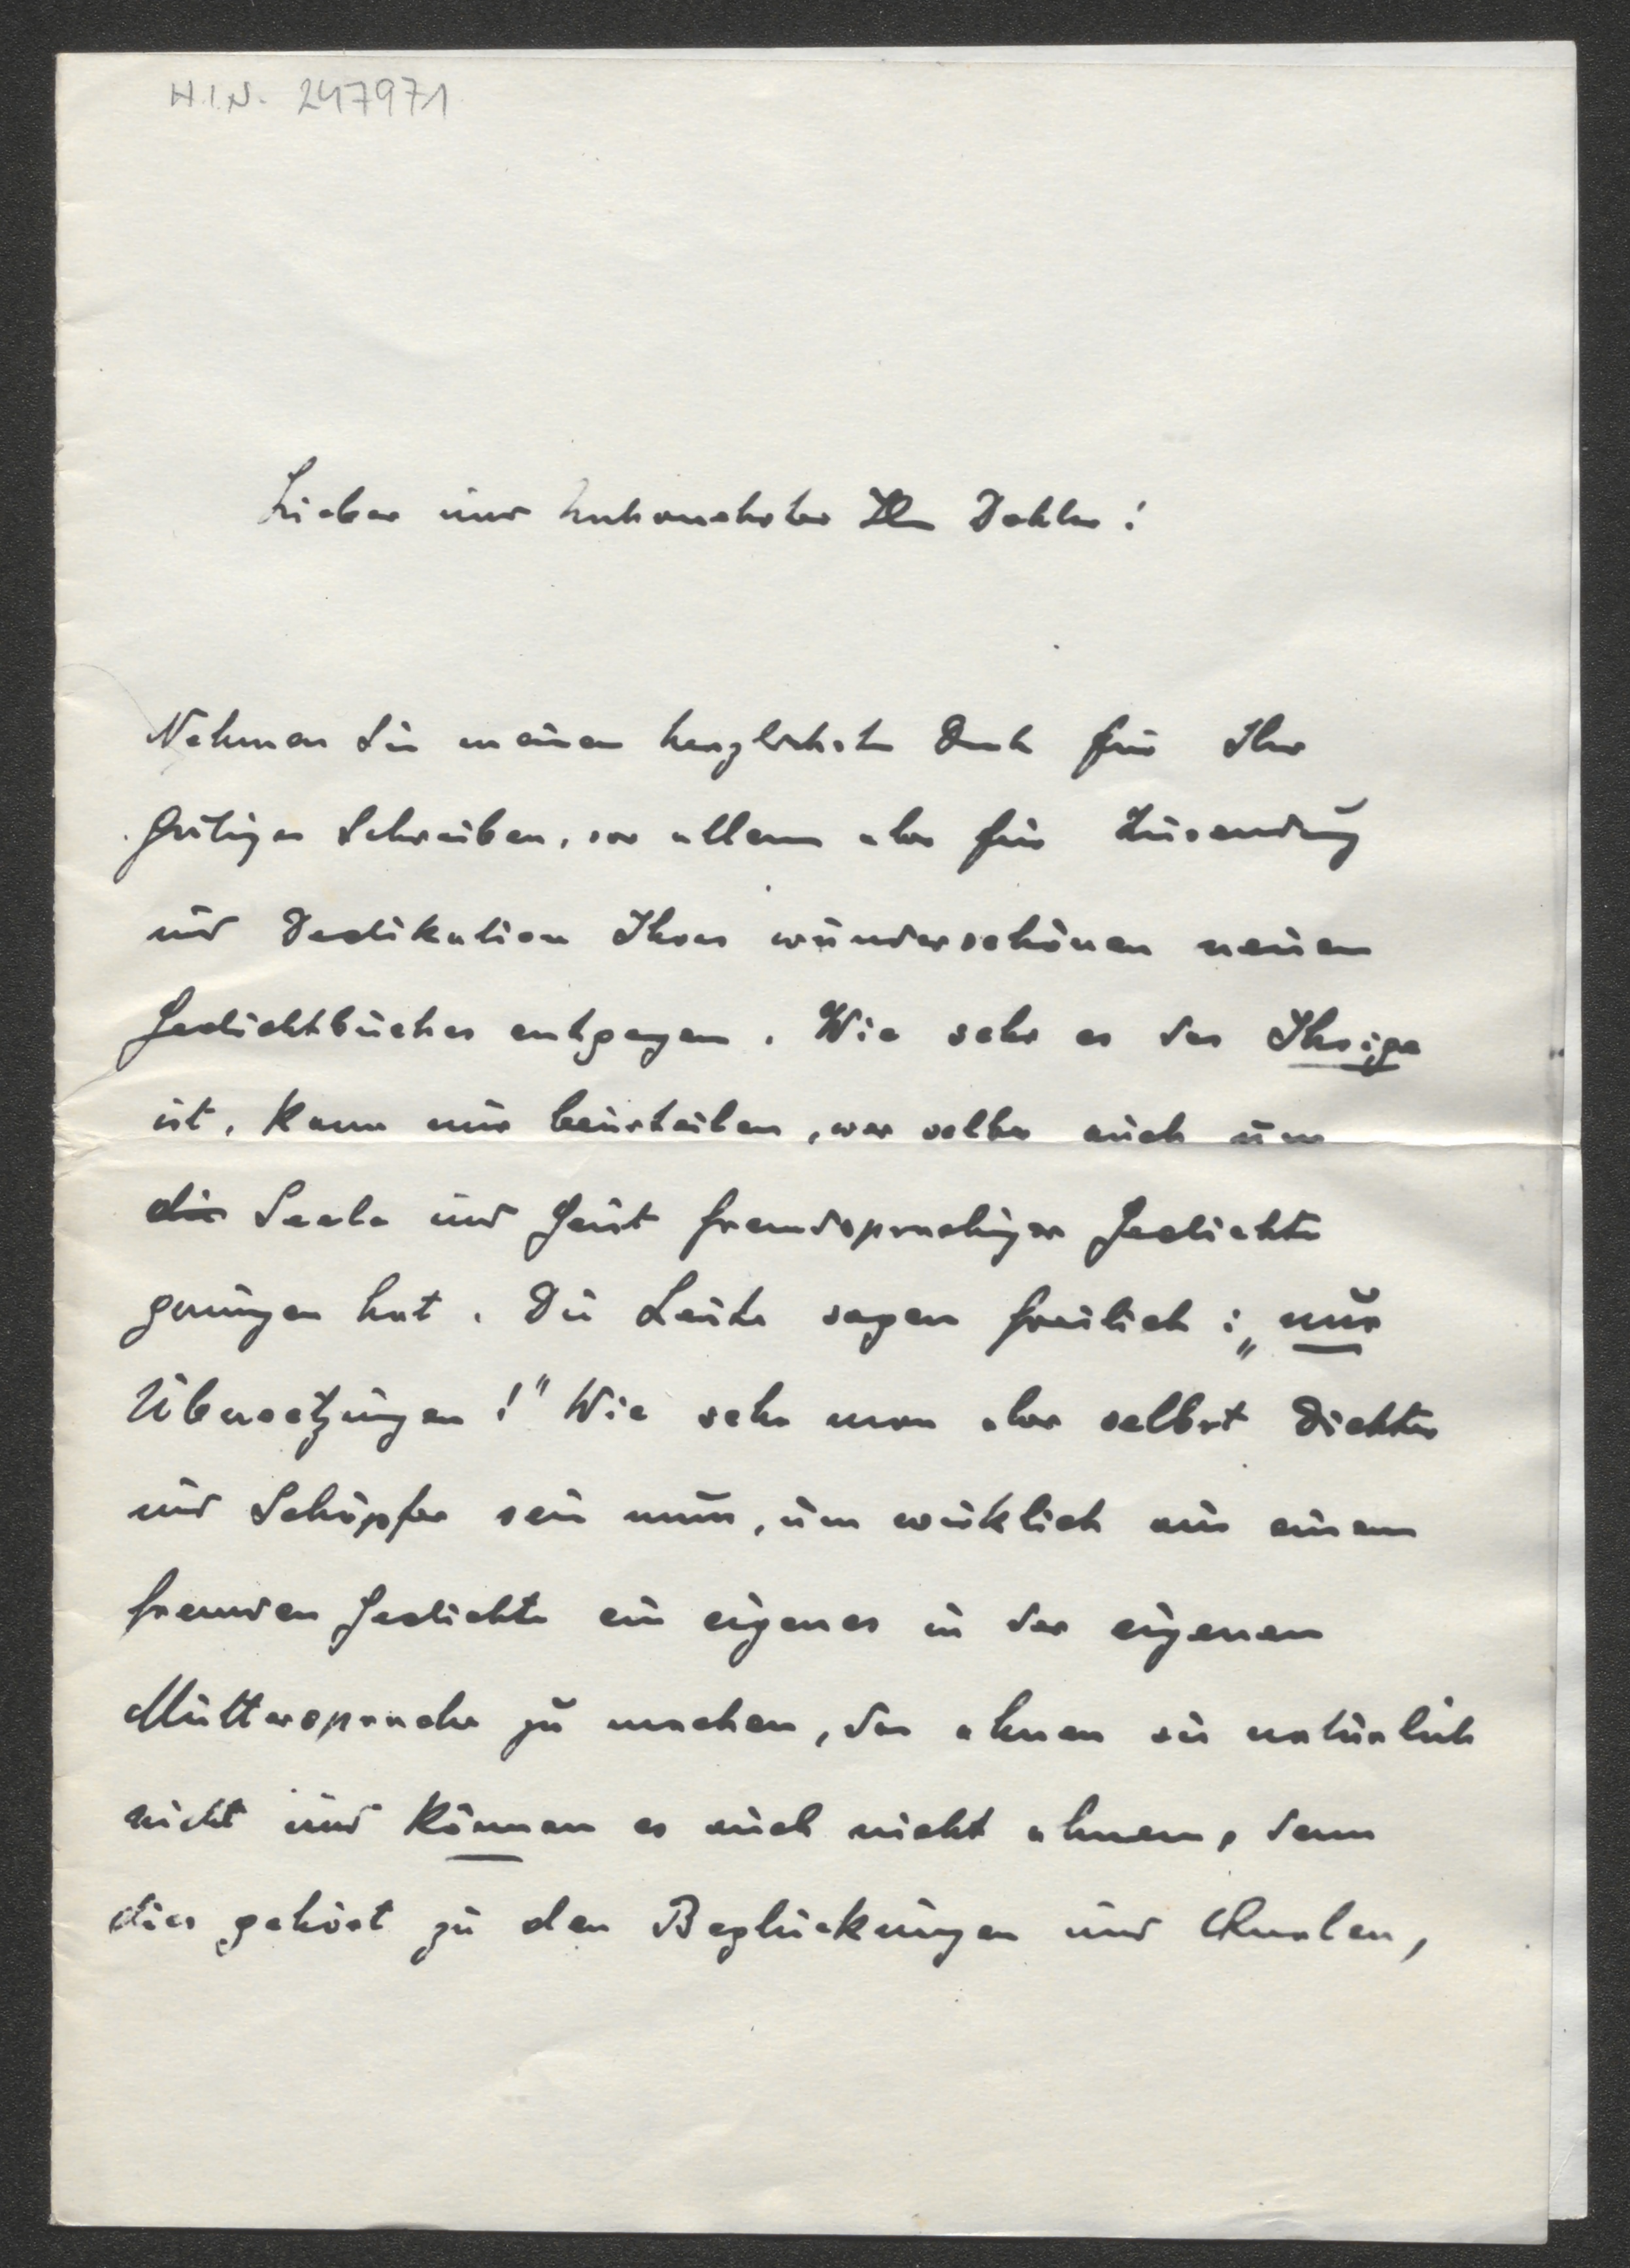 H.I.N. 247971
Lieber und hochverehrter Herr Doktor!
Nehmen Sie meinen herzlichsten Dank für Ihr
gütiges Schreiben, vor allem aber für Zusendung
und Dedikation Ihres wunderschönen neuen
Gedichtbuches entgegen. Wie sehr es das Ihrige
ist, kann nur beurteilen, wer selber auch um
die Seele und Geist fremdsprachiger Gedichte
gerungen hat. Die Leute sagen freilich: „nur
Übersetzungen!" Wie sehr man aber selbst Dichter
und Schöpfer sein muss, um wirklich aus einem
fremden Gedichte ein eigenes in der eigenen
Muttersprache zu machen, das ahnen sie natürlich
nicht und können es auch nicht ahnen, denn
dies gehört zu den Beglückungen und Qualen,